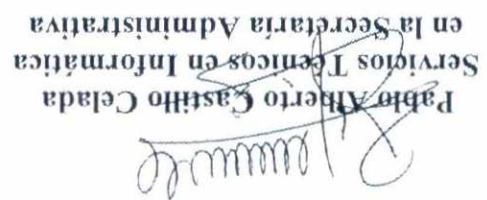 Pablo Alberto Castillo Celada
Servicios Técnicos en Informática
en la Secretaría Administrativa